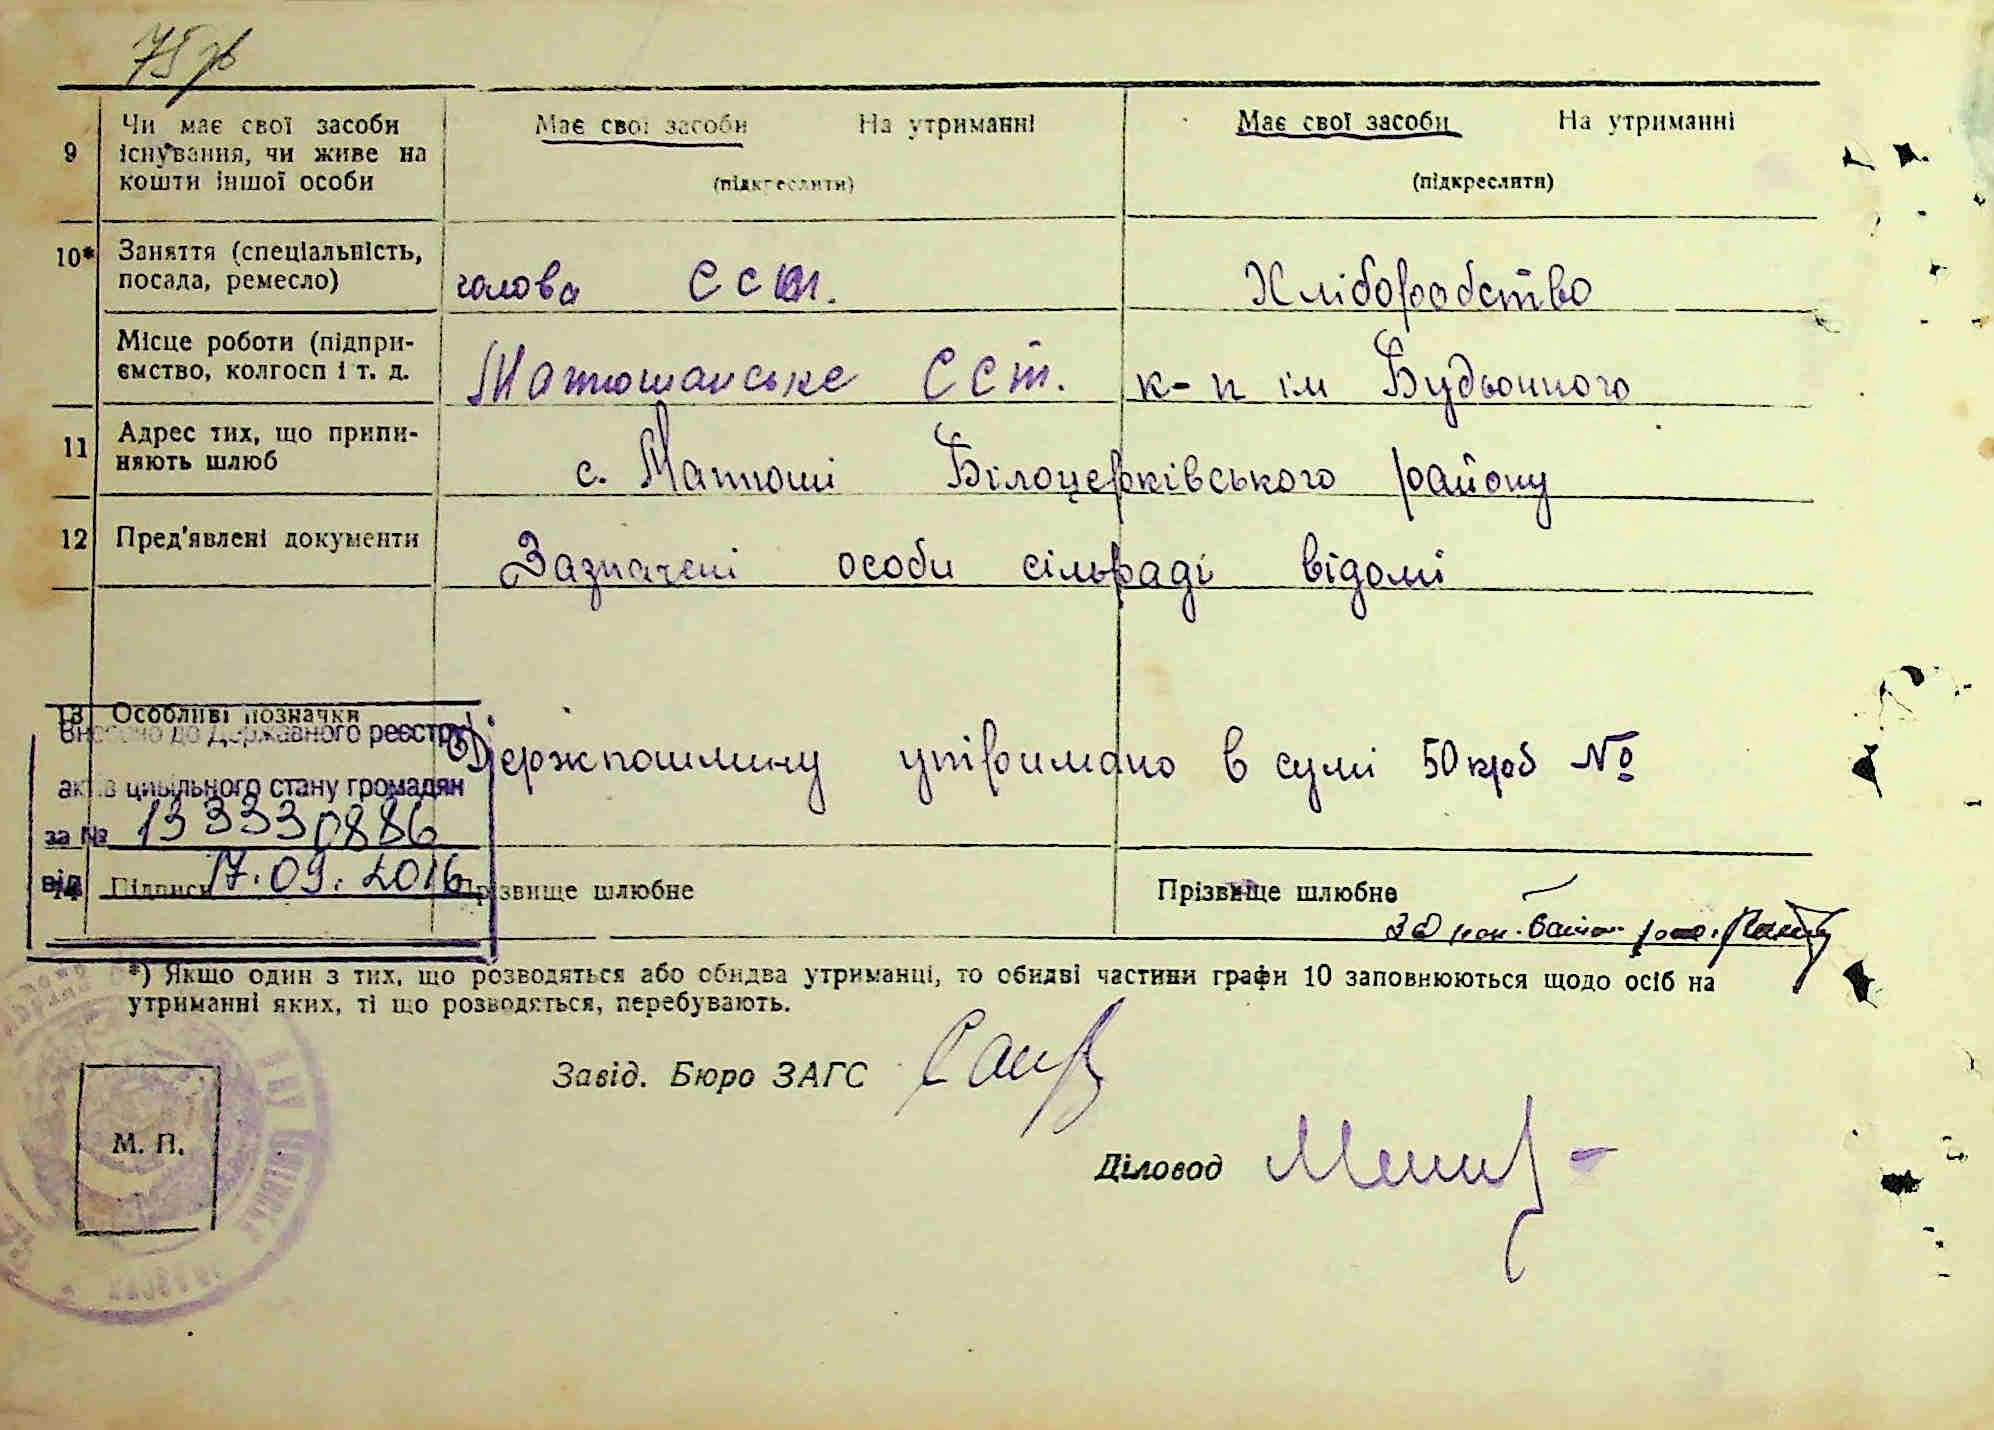 75
9 Чи має свої засоби існування, чи живе на кошти іншої особи
Має свої засоби На утриманні
(підкреслити)
Має свої засоби На утриманні
(підкреслити)
10* Заняття (спеціальність, посада, ремесло)
голова ССТ.
Хліборобство
Місце роботи (підпри-
ємство, колгосп і т. д.
Матюшанське ССТ.
к-п ім Будьонного
11 Адрес тих, що припи-
няють шлюб
с. Матюші Білоцерківського району
12 Пред'явлені документи
Зазначені особи сільраді відомі
13 Особливі позначки
Держпошлину утримано в сумі 50 крб №
Внесено до Державного реєстру
актів цивільного стану громадян
за № 13333 0886
від 17.09.2016
14 Підписи
Прізвище шлюбне
Прізвище шлюбне
*) Якщо один з тих, що розводяться або обидва утриманці, то обидві частини графи 10 заповнюються щодо осіб на
утриманні яких, ті що розводяться, перебувають.
Завід. Бюро ЗАГС
М. П.
Діловод